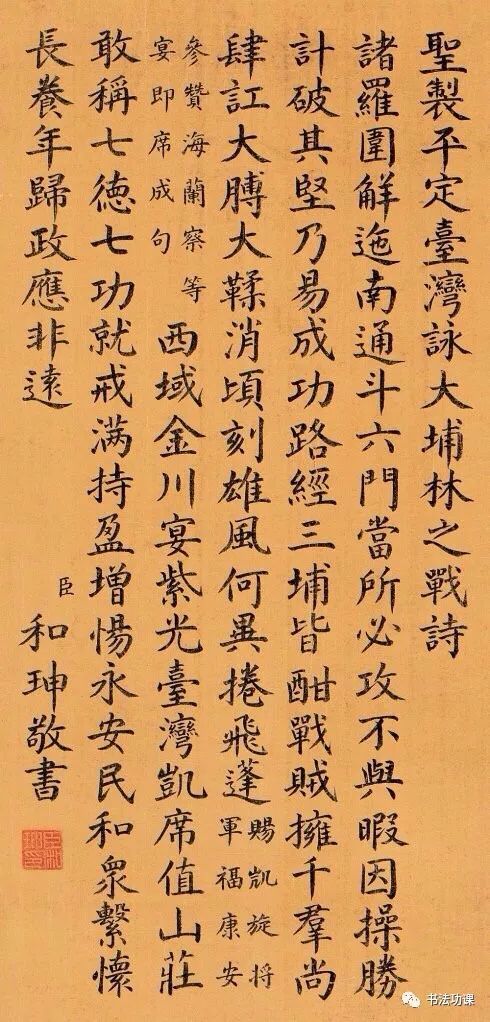 聖製平定臺灣詠大埔林之戰詩
諸羅圍解迤南通斗六門當所必攻不與暇因操勝
計破其堅乃易成功路經三埔皆酣戰賊擁千羣尚
肆訌大膊大鞣消頃刻雄風何異捲飛蓬賜凱旋將軍福康安
參贊海蘭察等宴即席成句西域金川宴紫光臺灣凱席值山莊
敢稱七德七功就戒满持盈增惕永安民和衆繫懷
長養年歸政應非遠
臣和珅敬書
书法功课